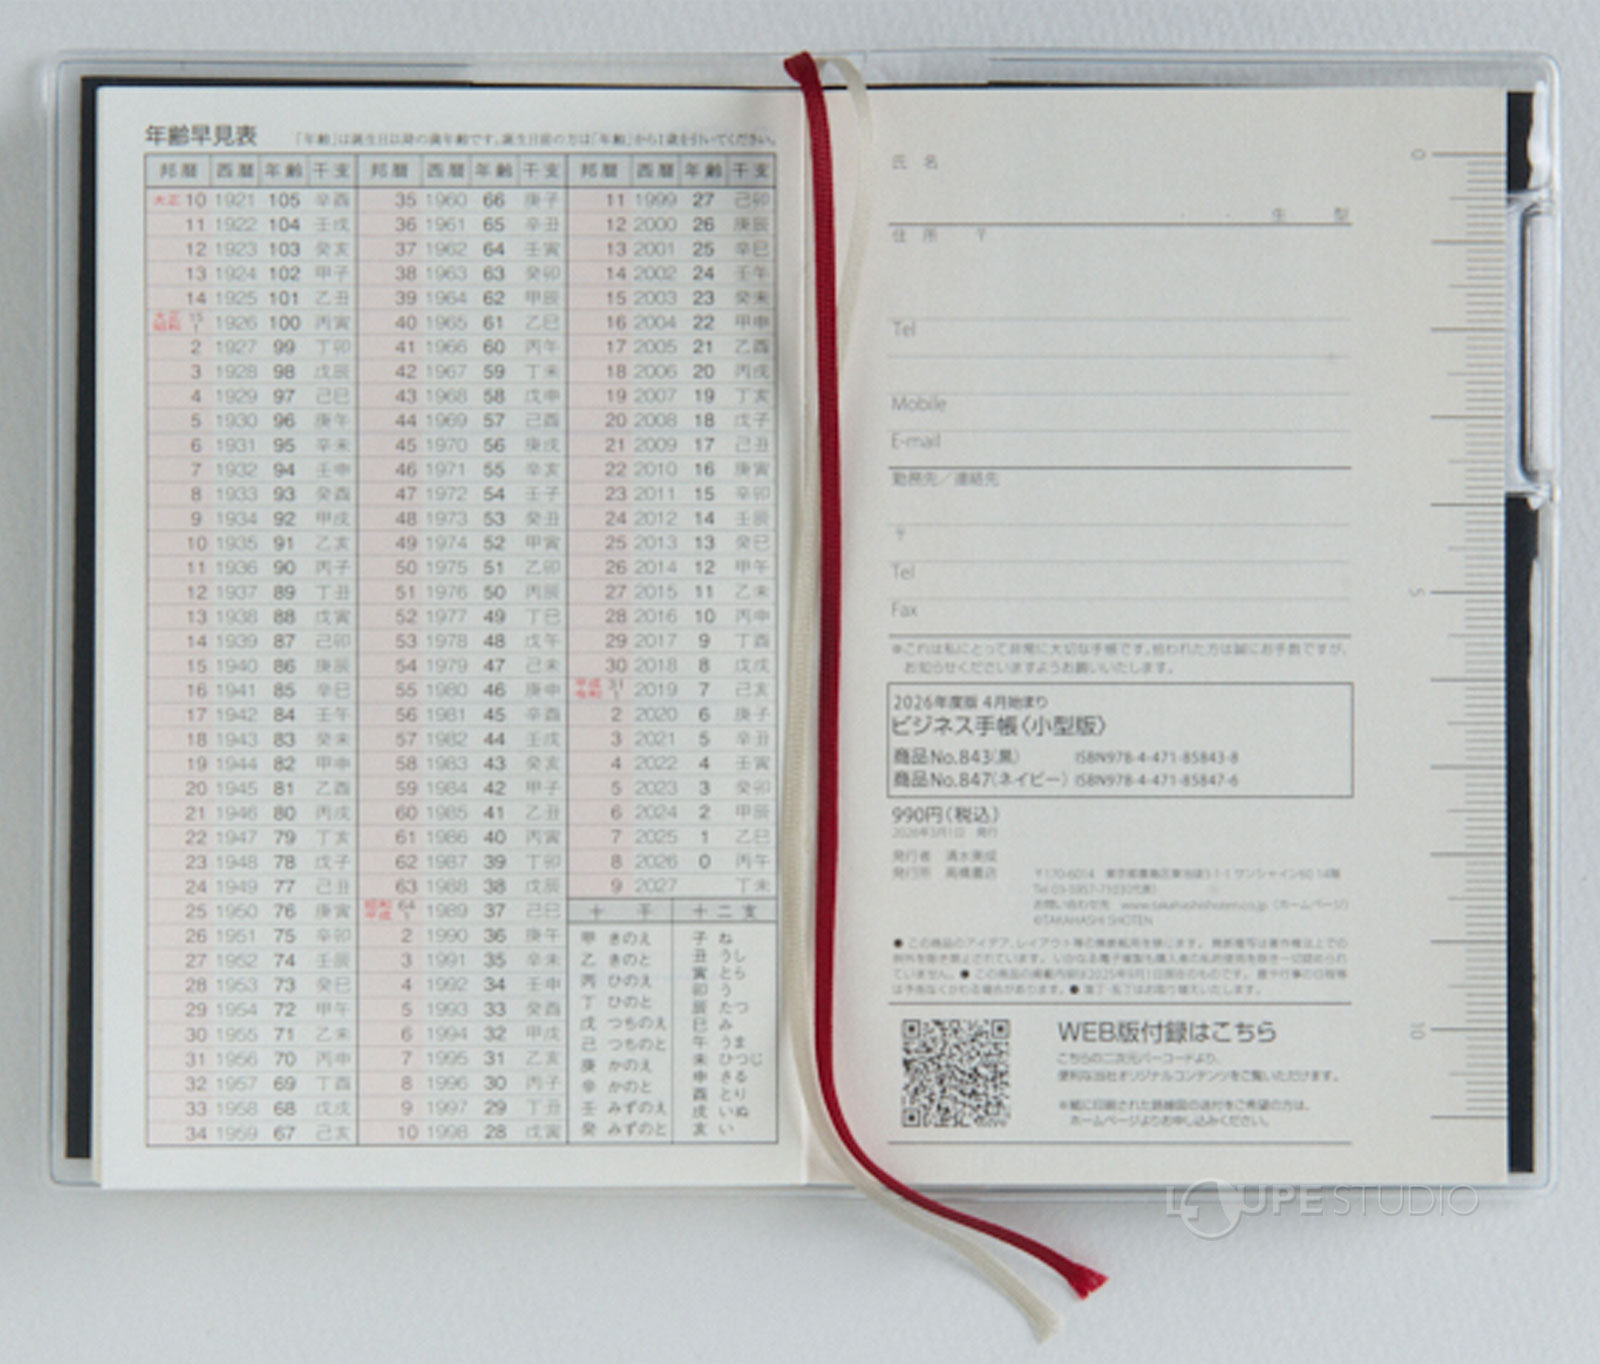 年齢早見表 「年齢」は誕生日以降の満年齢です。誕生日前の方は「年齢」から1歳を引いてください。
邦暦 西暦 年齢 干支 邦暦 西暦 年齢 干支 邦暦 西暦 年齢 干支
大正 10 1921 105 辛酉 35 1960 66 庚子 11 1999 27 己卯
11 1922 104 壬戌 36 1961 65 辛丑 12 2000 26 庚辰
12 1923 103 癸亥 37 1962 64 壬寅 13 2001 25 辛巳
13 1924 102 甲子 38 1963 63 癸卯 14 2002 24 壬午
14 1925 101 乙丑 39 1964 62 甲辰 15 2003 23 癸未
大正 15 昭和 1 1926 100 丙寅 40 1965 61 乙巳 16 2004 22 甲申
2 1927 99 丁卯 41 1966 60 丙午 17 2005 21 乙酉
3 1928 98 戊辰 42 1967 59 丁未 18 2006 20 丙戌
4 1929 97 己巳 43 1968 58 戊申 19 2007 19 丁亥
5 1930 96 庚午 44 1969 57 己酉 20 2008 18 戊子
6 1931 95 辛未 45 1970 56 庚戌 21 2009 17 己丑
7 1932 94 壬申 46 1971 55 辛亥 22 2010 16 庚寅
8 1933 93 癸酉 47 1972 54 壬子 23 2011 15 辛卯
9 1934 92 甲戌 48 1973 53 癸丑 24 2012 14 壬辰
10 1935 91 乙亥 49 1974 52 甲寅 25 2013 13 癸巳
11 1936 90 丙子 50 1975 51 乙卯 26 2014 12 甲午
12 1937 89 丁丑 51 1976 50 丙辰 27 2015 11 乙未
13 1938 88 戊寅 52 1977 49 丁巳 28 2016 10 丙申
14 1939 87 己卯 53 1978 48 戊午 29 2017 9 丁酉
15 1940 86 庚辰 54 1979 47 己未 30 2018 8 戊戌
16 1941 85 辛巳 55 1980 46 庚申 平成 31 令和 1 2019 7 己亥
17 1942 84 壬午 56 1981 45 辛酉 2 2020 6 庚子
18 1943 83 癸未 57 1982 44 壬戌 3 2021 5 辛丑
19 1944 82 甲申 58 1983 43 癸亥 4 2022 4 壬寅
20 1945 81 乙酉 59 1984 42 甲子 5 2023 3 癸卯
21 1946 80 丙戌 60 1985 41 乙丑 6 2024 2 甲辰
22 1947 79 丁亥 61 1986 40 丙寅 7 2025 1 乙巳
23 1948 78 戊子 62 1987 39 丁卯 8 2026 0 丙午
24 1949 77 己丑 63 1988 38 戊辰 9 2027 丁未
25 1950 76 庚寅 昭和 64 平成 1 1989 37 己巳 十干 十二支
26 1951 75 辛卯 2 1990 36 庚午
27 1952 74 壬辰 3 1991 35 辛未
28 1953 73 癸巳 4 1992 34 壬申
29 1954 72 甲午 5 1993 33 癸酉
30 1955 71 乙未 6 1994 32 甲戌
31 1956 70 丙申 7 1995 31 乙亥
32 1957 69 丁酉 8 1996 30 丙子
33 1958 68 戊戌 9 1997 29 丁丑
34 1959 67 己亥 10 1998 28 戊寅
甲 きのえ
乙 きのと
丙 ひのえ
丁 ひのと
戊 つちのえ
己 つちのと
庚 かのえ
辛 かのと
壬 みずのえ
癸 みずのと
子 ね
丑 うし
寅 とら
卯 う
辰 たつ
巳 み
午 うま
未 ひつじ
申 さる
酉 とり
戌 いぬ
亥 い
氏 名
生 型
住 所 〒
Tel
Mobile
E-mail
勤務先/連絡先
〒
Tel
Fax
※これは私にとって非常に大切な手帳です。拾われた方は誠にお手数ですが、
お知らせくださいますようお願いいたします。
2026年度版 4月始まり
ビジネス手帳〈小型版〉
商品No.843(黒) ISBN978-4-471-85843-8
商品No.847(ネイビー) ISBN978-4-471-85847-6
990円(税込)
2026年3月1日 発行
発行者 清水美成
発行所 高橋書店
〒170-6014 東京都豊島区東池袋3-1-1 サンシャイン60 14階
Tel 03-5957-7103(代表)
お問い合わせ先 www.takahashishoten.co.jp (ホームページ)
©TAKAHASHI SHOTEN
● この商品のアイデア、レイアウト等の無断転用を禁じます。 無断複写は著作権法上での
例外を除き禁止されています。 いかなる電子複製も購入者の私的使用を除き一切認められ
ていません。● この商品の掲載内容は2025年9月1日現在のものです。 暦や行事の日程等
は予告なくかわる場合があります。● 落丁・乱丁はお取り替えいたします。
WEB版付録はこちら
こちらの二次元バーコードより、
便利な当社オリジナルコンテンツをご覧いただけます。
※紙に印刷された路線図の送付をご希望の方は、
ホームページよりお申し込みください。
0
5
10
LOUPE STUDIO